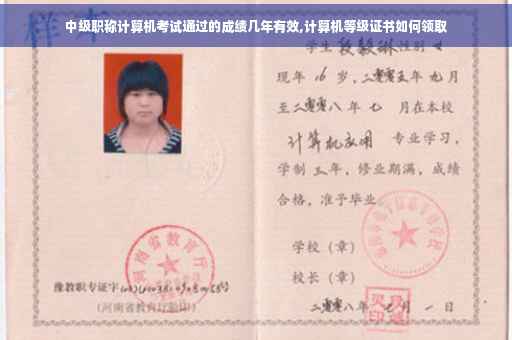 中级职称计算机考试通过的成绩几年有效,计算机等级证书如何领取
样本
学生段毅琳性别女
现年16岁,二零零五年九月
至二零零八年七月在本校
计算机应用 专业学习,
学制三年,修业期满,成绩
合格,准予毕业。
学校(章)
校长(章)
二零零八年 月一日
河南省教育厅
豫教职专证字
(河南省教育厅监印)